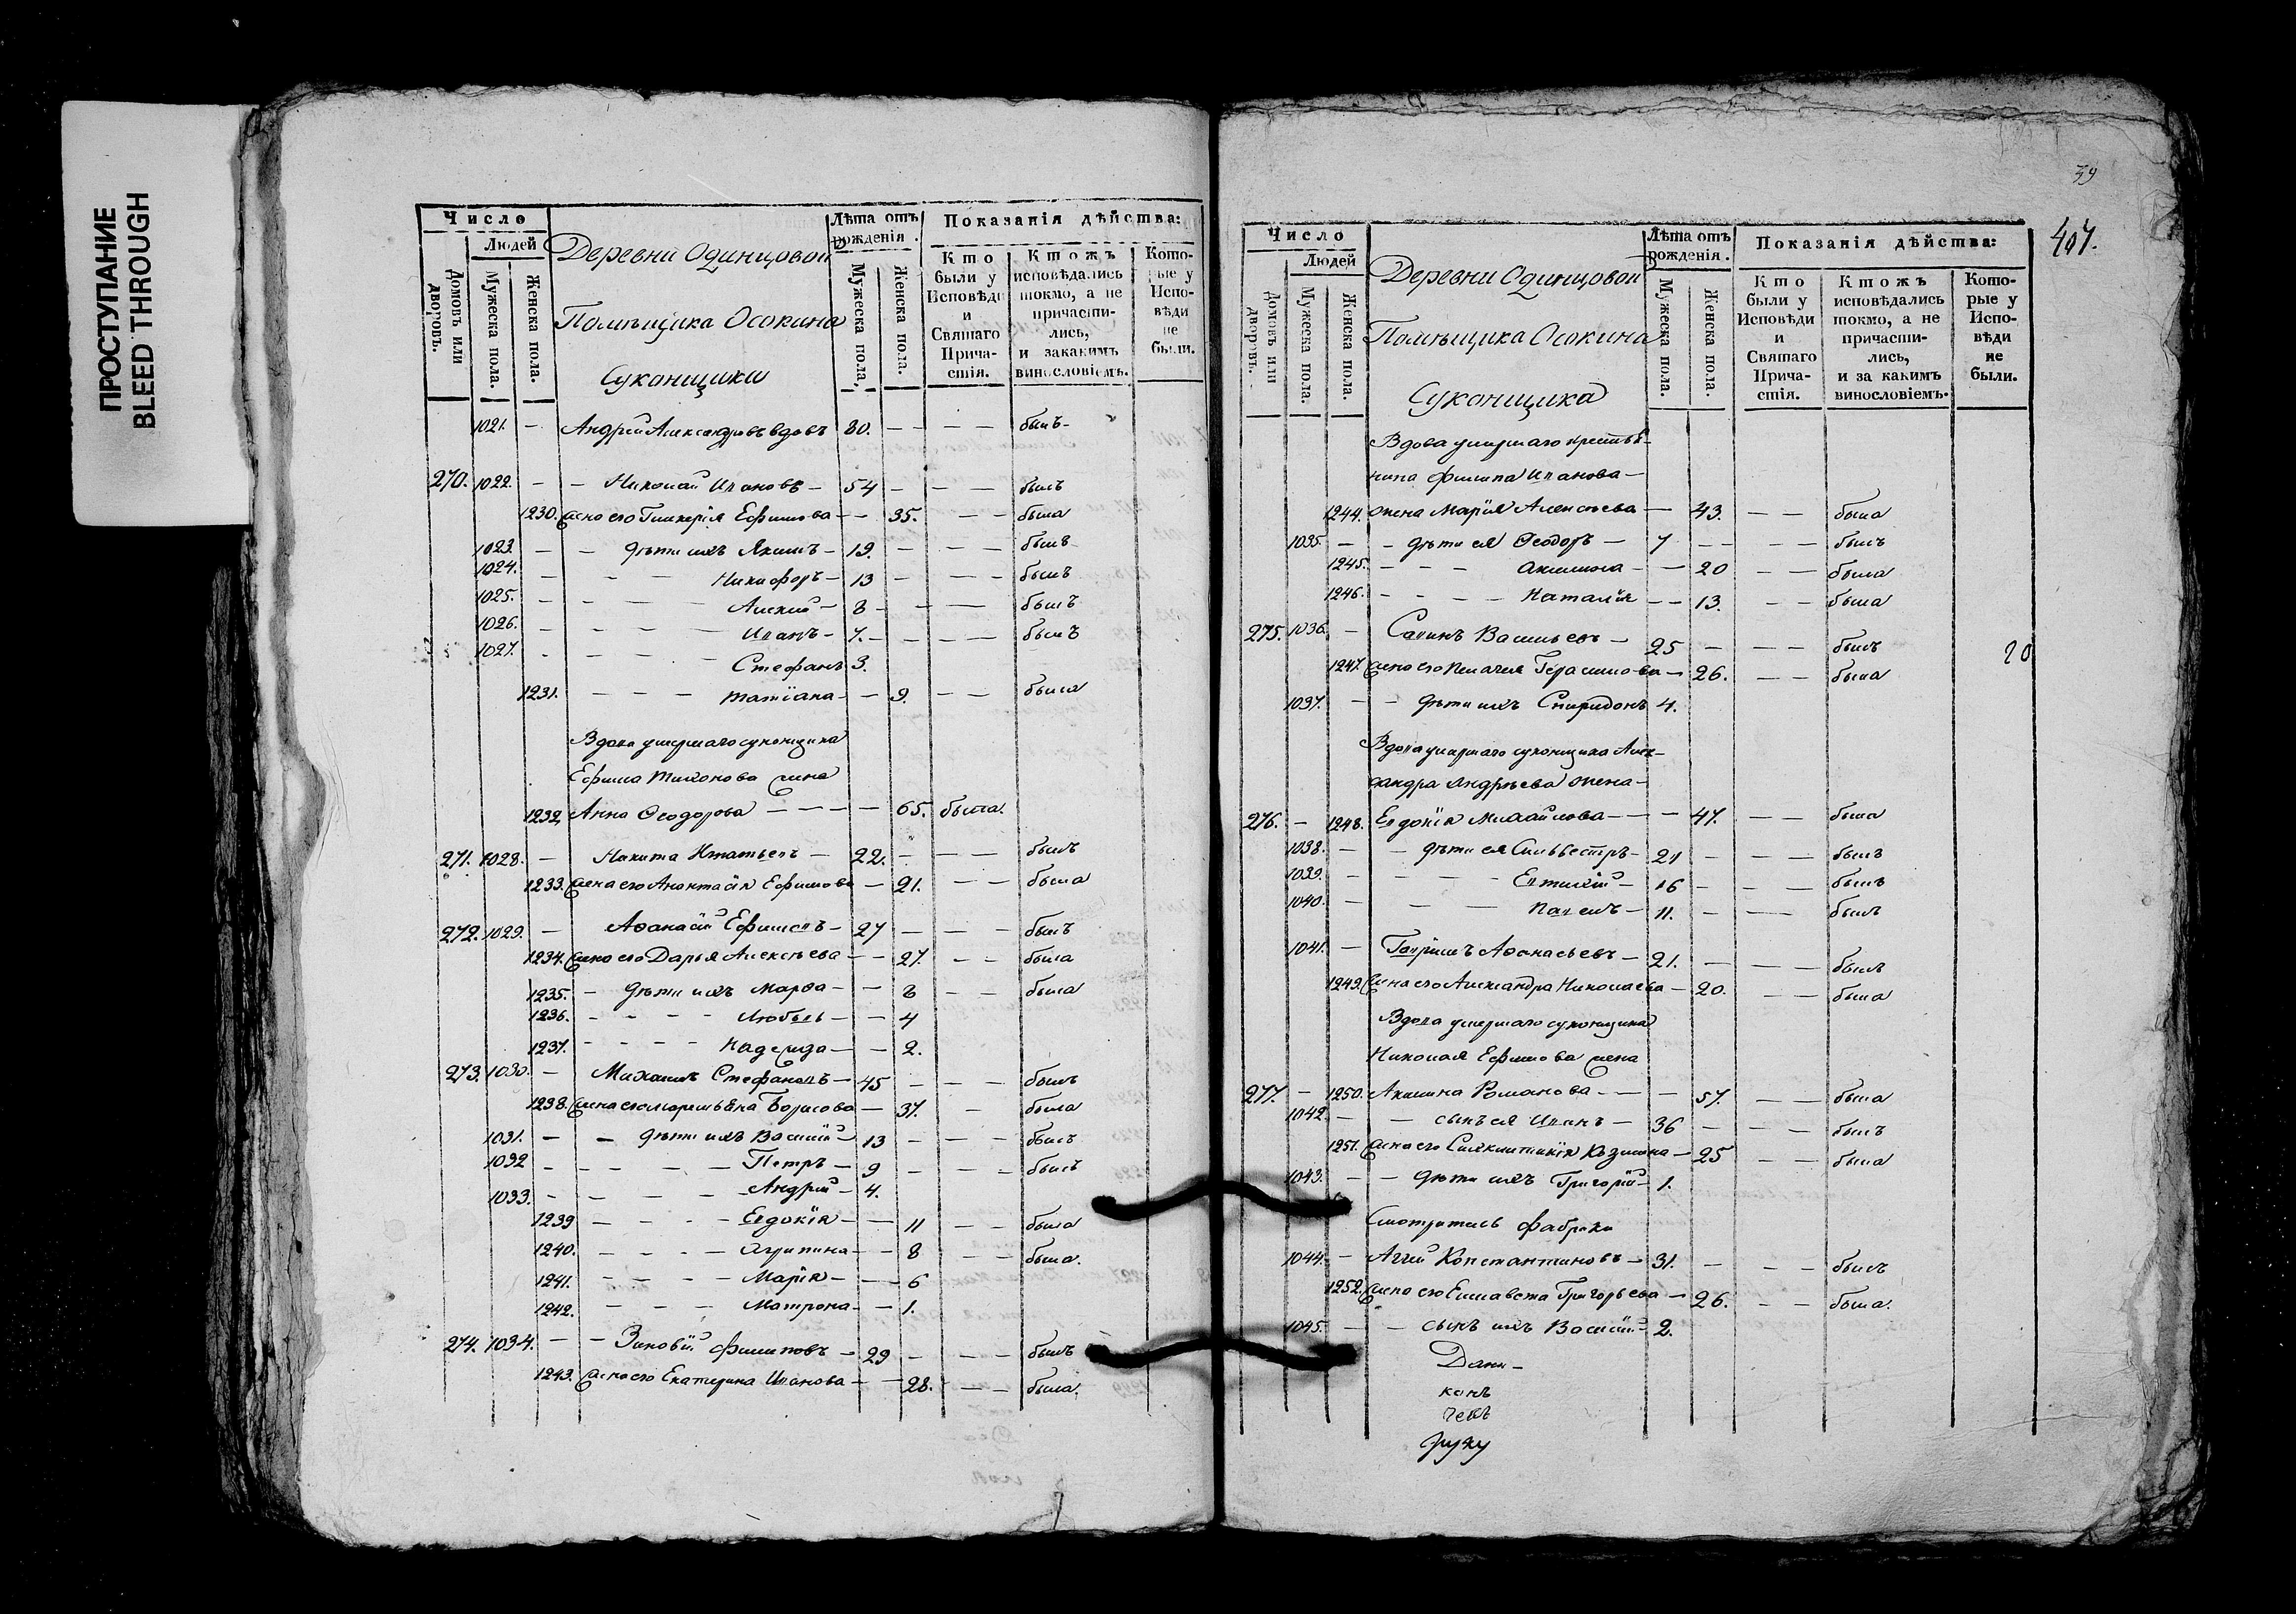 ПРОСТУПАНИЕ
BLEED THROUGH
Число
Людей
Домовъ или дворовъ.
Мужеска пола.
Женска пола.
Деревни Одинцовой
Помѣщика Осокина
Суконщики
Лѣта отъ рожденія.
Мужеска пола,
Женска пола.
Показанія дѣйства:
Кто были у Исповѣди и Святаго Причастія.
Ктожъ исповѣдались токмо, а не причастились, и закакимъ винословіемъ.
Которые у Исповѣди не были.
1021. — Андрей Александровъ вдовъ 80. — — — — былъ —
270. 1022. — — Николай Ивановъ — 54 — — — былъ
1230. жена его Гликерія Ефимова — — 35. — — была
1023. — — дѣти ихъ Якимъ — 19. — — — былъ
1024. — — — Никифоръ — 13 — — — былъ
1025. — — — — Алексѣй — 8 — — — былъ
1026. — — — — Иванъ — 7. — — — — былъ
1027. — — — — Стефанъ 3.
1231. — — — Татіана — — 9. — — была
Вдова умершаго суконщика
Ефима Тихонова жена
1232 Анна Ѳеодорова — — — — 65. была.
271. 1028. — Никита Игнатьевъ — 22. — — — былъ
1233. жена его Анастасія Ефимова — 21. — — была
272. 1029. — Аѳанасій Ефимовъ — 27 — — — былъ
1234. жена его Дарья Алексѣева — — 27. — — была
1235. — дѣти ихъ Марѳа — — 8 — — была
1236. — — — — Любовь — — 4
1237. — — — — Надежда — — 2.
273. 1030. — Михаилъ Стефановъ — 45 — — — былъ
1238. жена его Борисова — 37. — была
1031. — — дѣти ихъ Василій — 13 — — — былъ
1032 — — — — — Петръ — 9 — — — былъ
1033. — — — — Андрей — 4.
1239 — — — — Евдокія — — 11 — — была
1240. — — — — Агрипина — — 8 — — была.
1241. — — — — Марія — — — 6
1242. — — — Матрона — — 1.
274. 1034. — — Зиновій Филиповъ — 29 — — — былъ
1243. жена его Екатерина Иванова — — 28. — — была.
39
407.
Число
Людей
Домовъ или дворовъ.
Мужеска пола.
Женска пола.
Деревни Одинцовой
Помѣщика Осокина
Суконщика
Лѣта отъ рожденія.
Мужеска пола.
Женска пола.
Показанія дѣйства:
Кто были у Исповѣди и Святаго Причастія.
Ктожъ исповѣдались токмо, а не причастились, и за какимъ винословіемъ.
Которые у Исповѣди не были.
Вдова умершаго крестья-
нина Филипа Иванова —
1244. жена Марія Алексѣева — 43. — — была
1035. — — дѣти ея Ѳеодоръ — 7 — — — — былъ
1245. — — — Акилина — — 20 — — была
1246. — — — — Наталія — — 13. — — была
275. 1036. — Васильевъ — 25 — — — былъ
1247. жена его Пелагея Герасимова — 26. — — была
20
1037. — — дѣти ихъ Спиридонъ 4.
Вдова умершаго суконщика Алек-
сандра Андрѣева жена —
276. — 1248. Евдокія Михайлова — — — 47. — — была
1038. — — дѣти ея Сильвестръ — 21 — — — былъ
1039. — — — — Евтихій — 16 — — — былъ
1040. — — — Павелъ — 11. — — былъ
1041. — Гавріилъ Аѳанасьевъ — 21. — — — былъ
1249. жена его Александра Николаева — 20. — — была
Вдова умершаго суконщика
Николая Ефимова жена
277. — 1250. Акилина Романова — — — 57. — — была
1042. — — сынъ ея Иванъ — 36 — — — былъ
1251. жена его Козмина — 25 — — была
1043. — — дѣти ихъ Григорій — 1.
Смотритель фабрики
1044. — Аггей Константиновъ — 31. — — — былъ
1252. жена его Елисавета Григорьева — 26. — — была.
1045. — — сынъ ихъ Василій 2.
руку